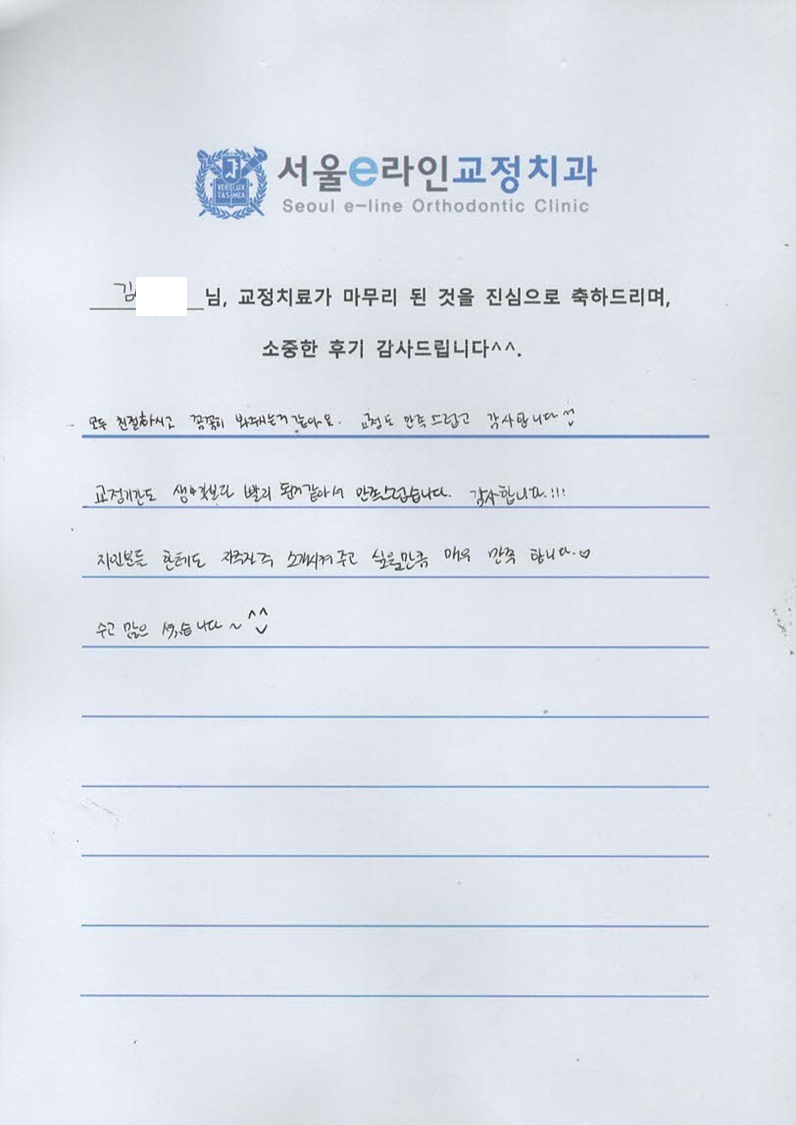 서울e라인교정치과
Seoul e-line Orthodontic Clinic
VERI LUX
TAS MEA
김 님, 교정치료가 마무리 된 것을 진심으로 축하드리며,
소중한 후기 감사드립니다^^.
모두 친절하시고 꼼꼼히 봐주시는거 같아요. 교정도 만족드럽고 감사합니다
교정기간도 생각보다 빨리 된거같아서 만족스럽습니다. 감사합니다.!!!
지인분들 한테도 자주자주 소개시켜 주고 싶은만큼 매우 만족 합니다.♡
수고 많으 셨습니다~ ^^